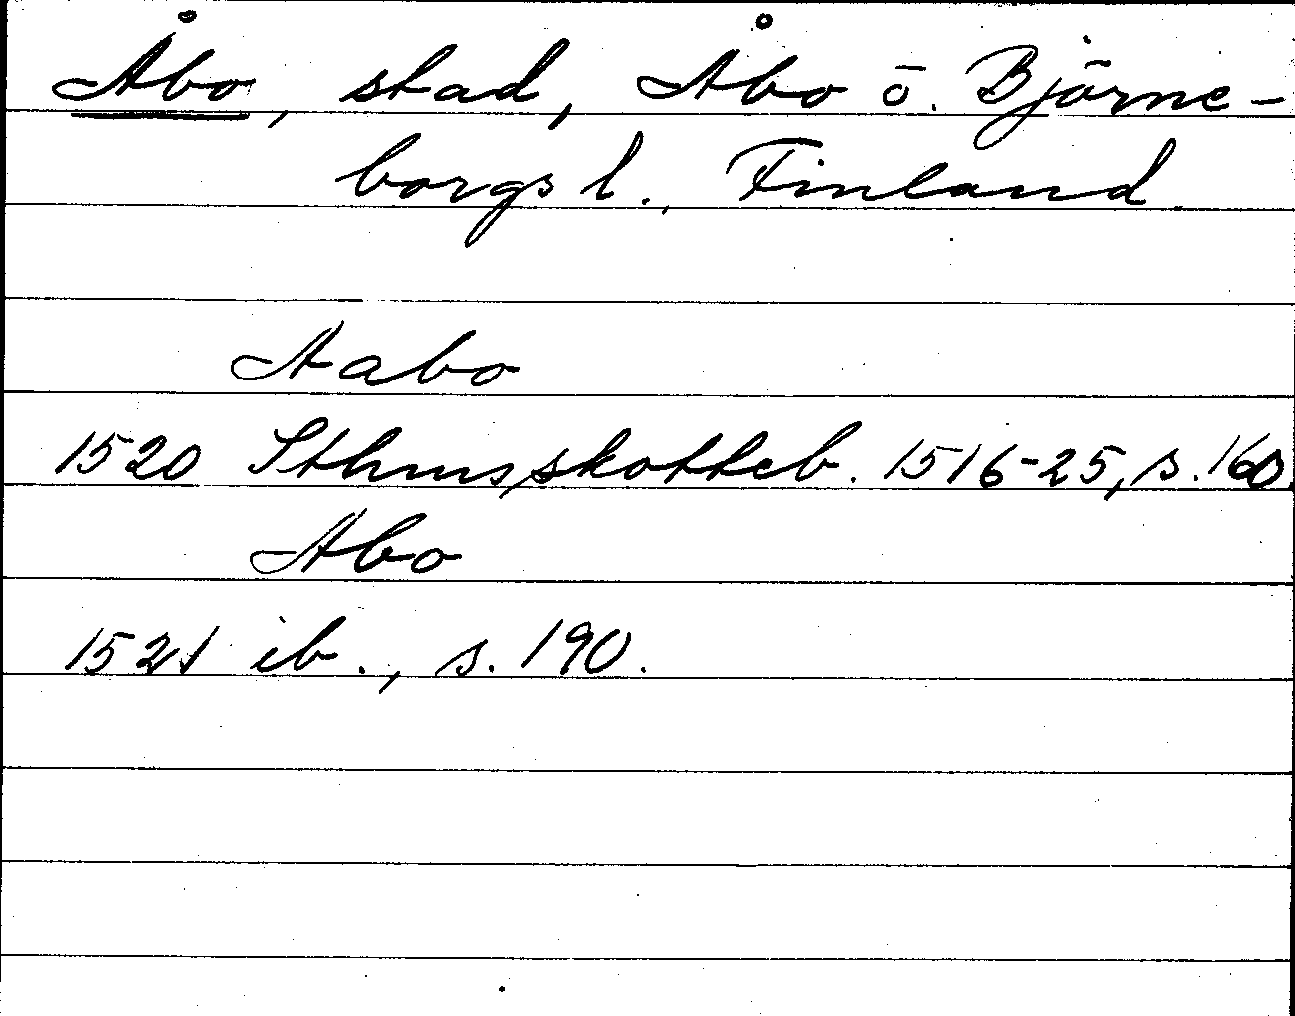 Åbo, stad, Åbo o. Björne-
borgs l., Finland.
Aabo
1520 Sthms skotteb. 1516-25, s. 160.
Abo
1521 ib., s. 190.